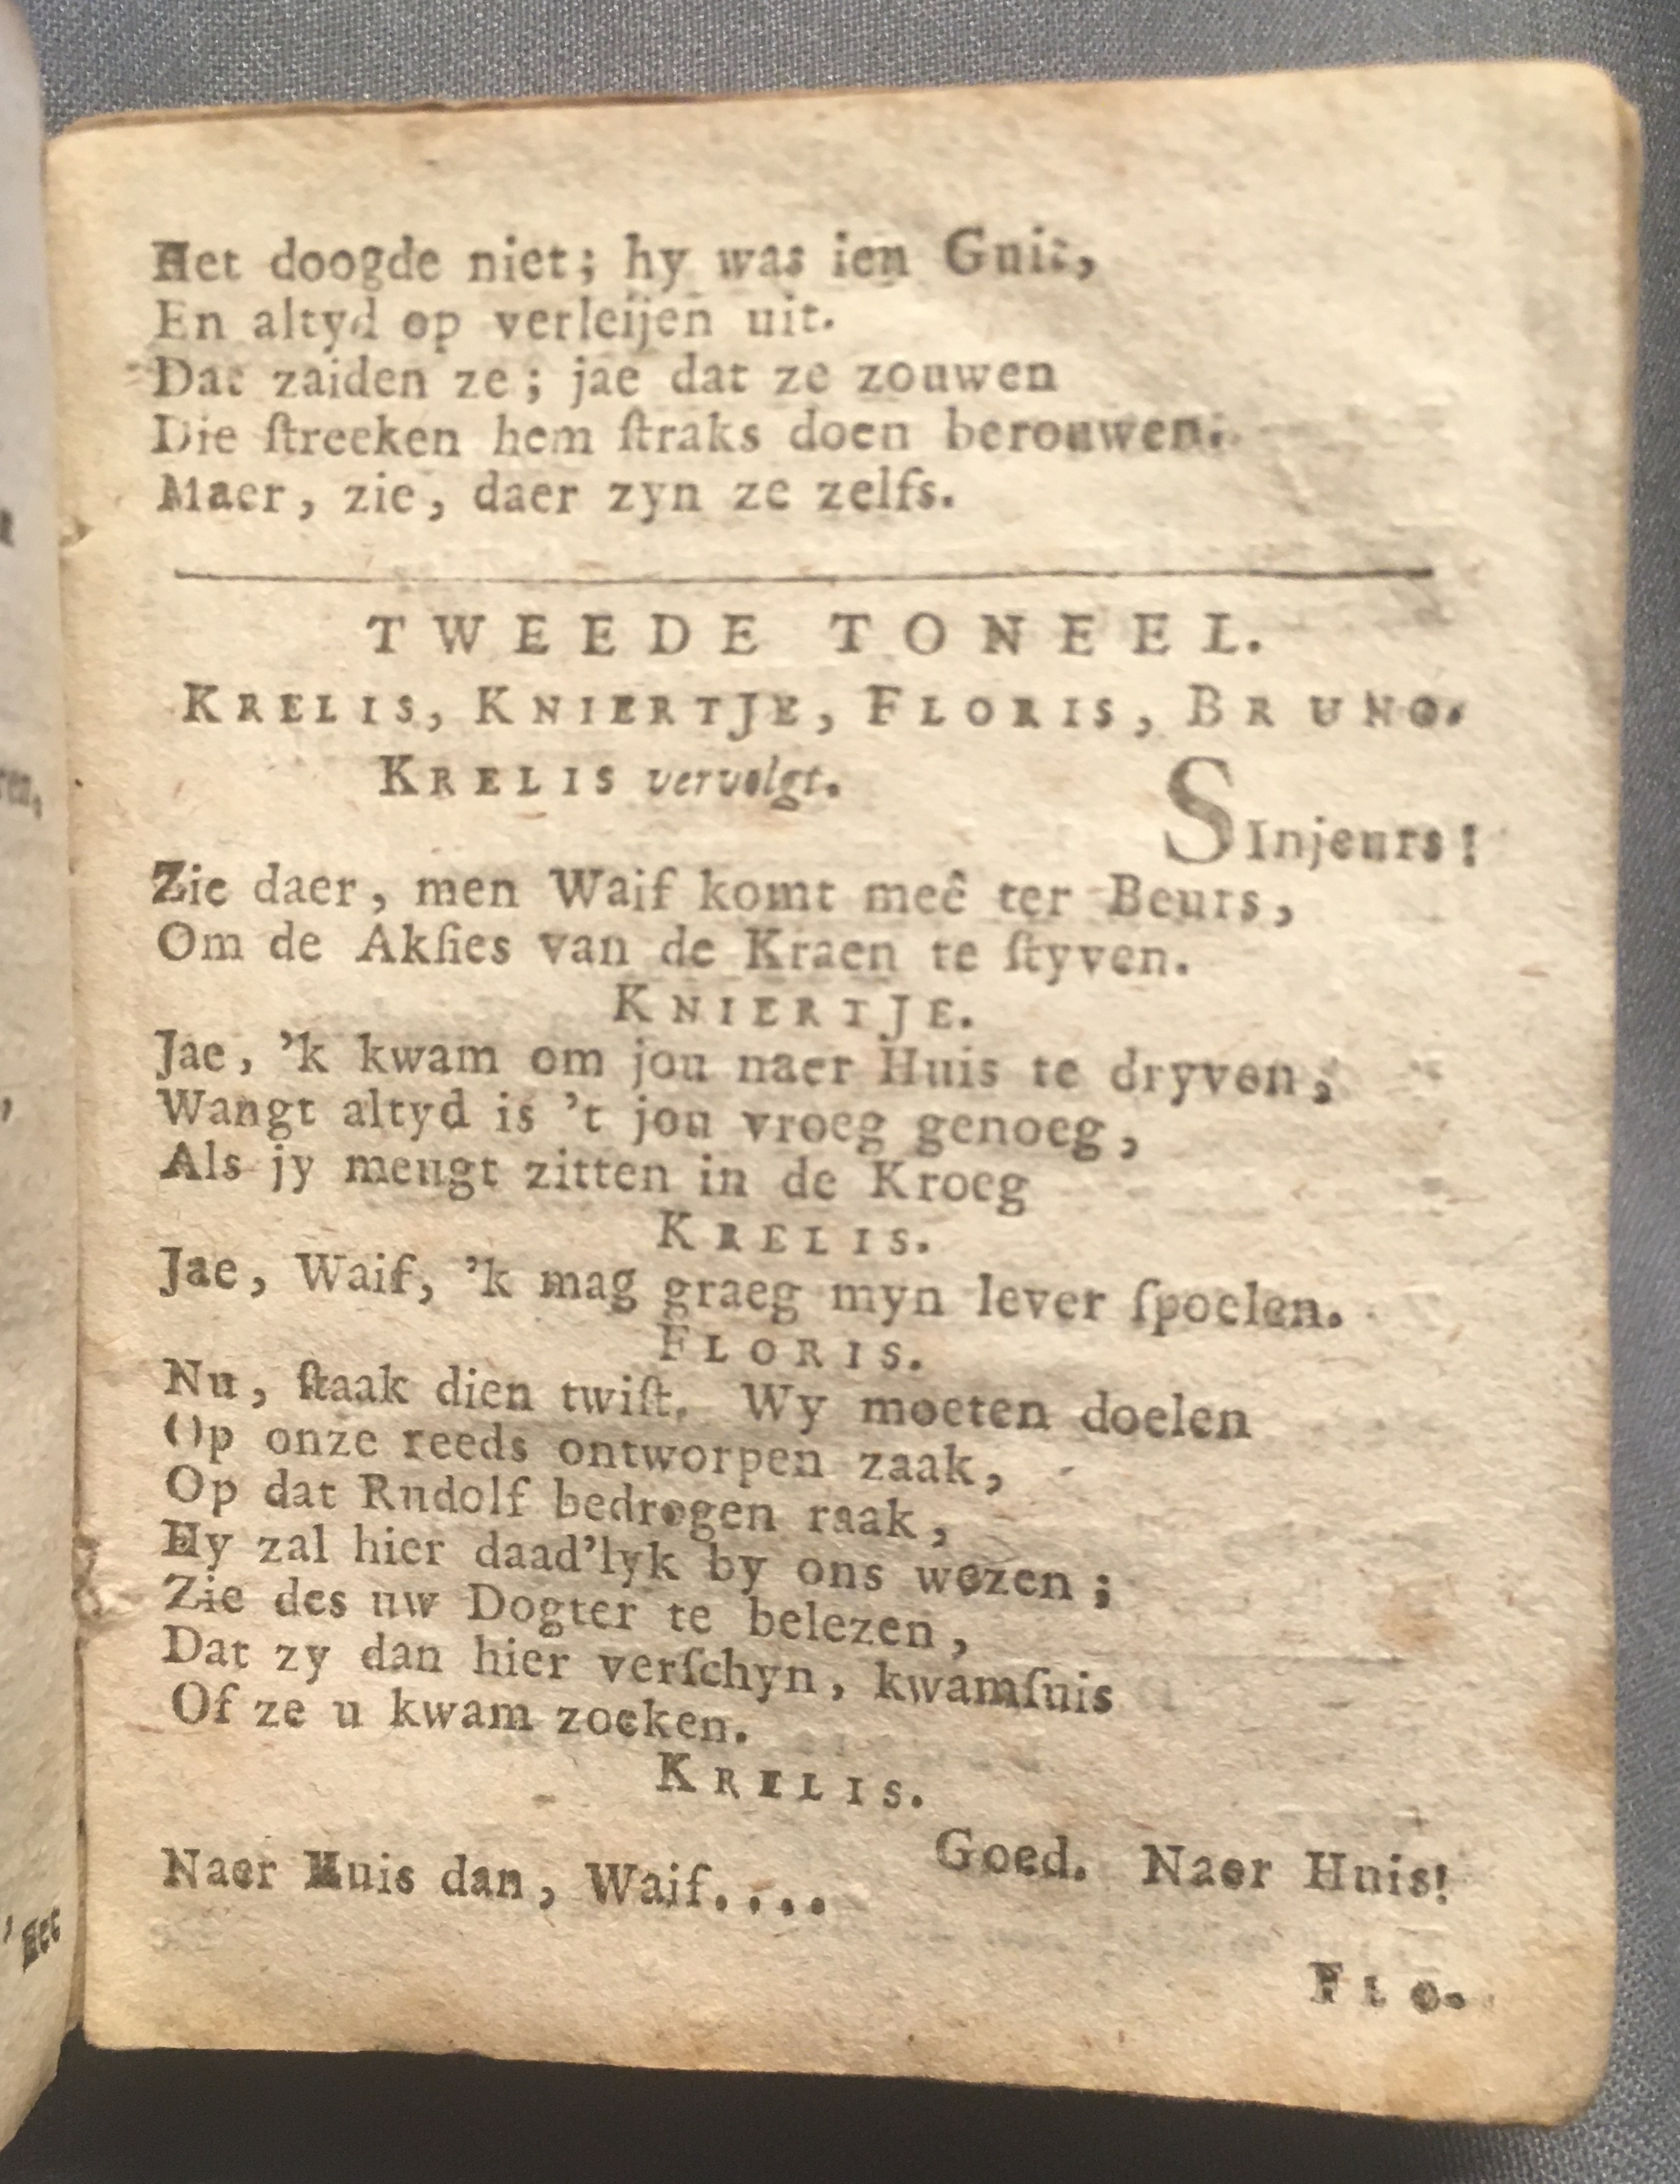 Het doogde niet; hy was ien Guit,
En altyd op verleijen uit.
Dat zaiden ze; jae dat ze zouwen
Die ſtreeken hem ſtraks doen berouwen.
Maer, zie, daer zyn ze zelfs.
TWEEDE TONEEL.
KRELIS, KNIERTJE, FLORIS, BRUNO.
KRELIS vervolgt.
SInjeurs!
Zie daer, men Waif komt meê ter Beurs,
Om de Akſies van de Kraen te ſtyven.
KNIERTJE.
Jae, 'k kwam om jou naer Huis te dryven,
Wangt altyd is 't jou vroeg genoeg,
Als jy meugt zitten in de Kroeg
KRELIS.
Jae, Waif, 'k mag graeg myn lever ſpoelen.
FLORIS.
Nu, ſtaak dien twiſt. Wy moeten doelen
Op onze reeds ontworpen zaak,
Op dat Rudolf bedrogen raak,
Hy zal hier daad'lyk by ons wezen;
Zie des uw Dogter te belezen,
Dat zy dan hier verſchyn, kwamſuis
Of ze u kwam zoeken.
KRELIS.
Goed. Naer Huis!
Naer Huis dan, Waif....
FLO-
ren,
,
, Het